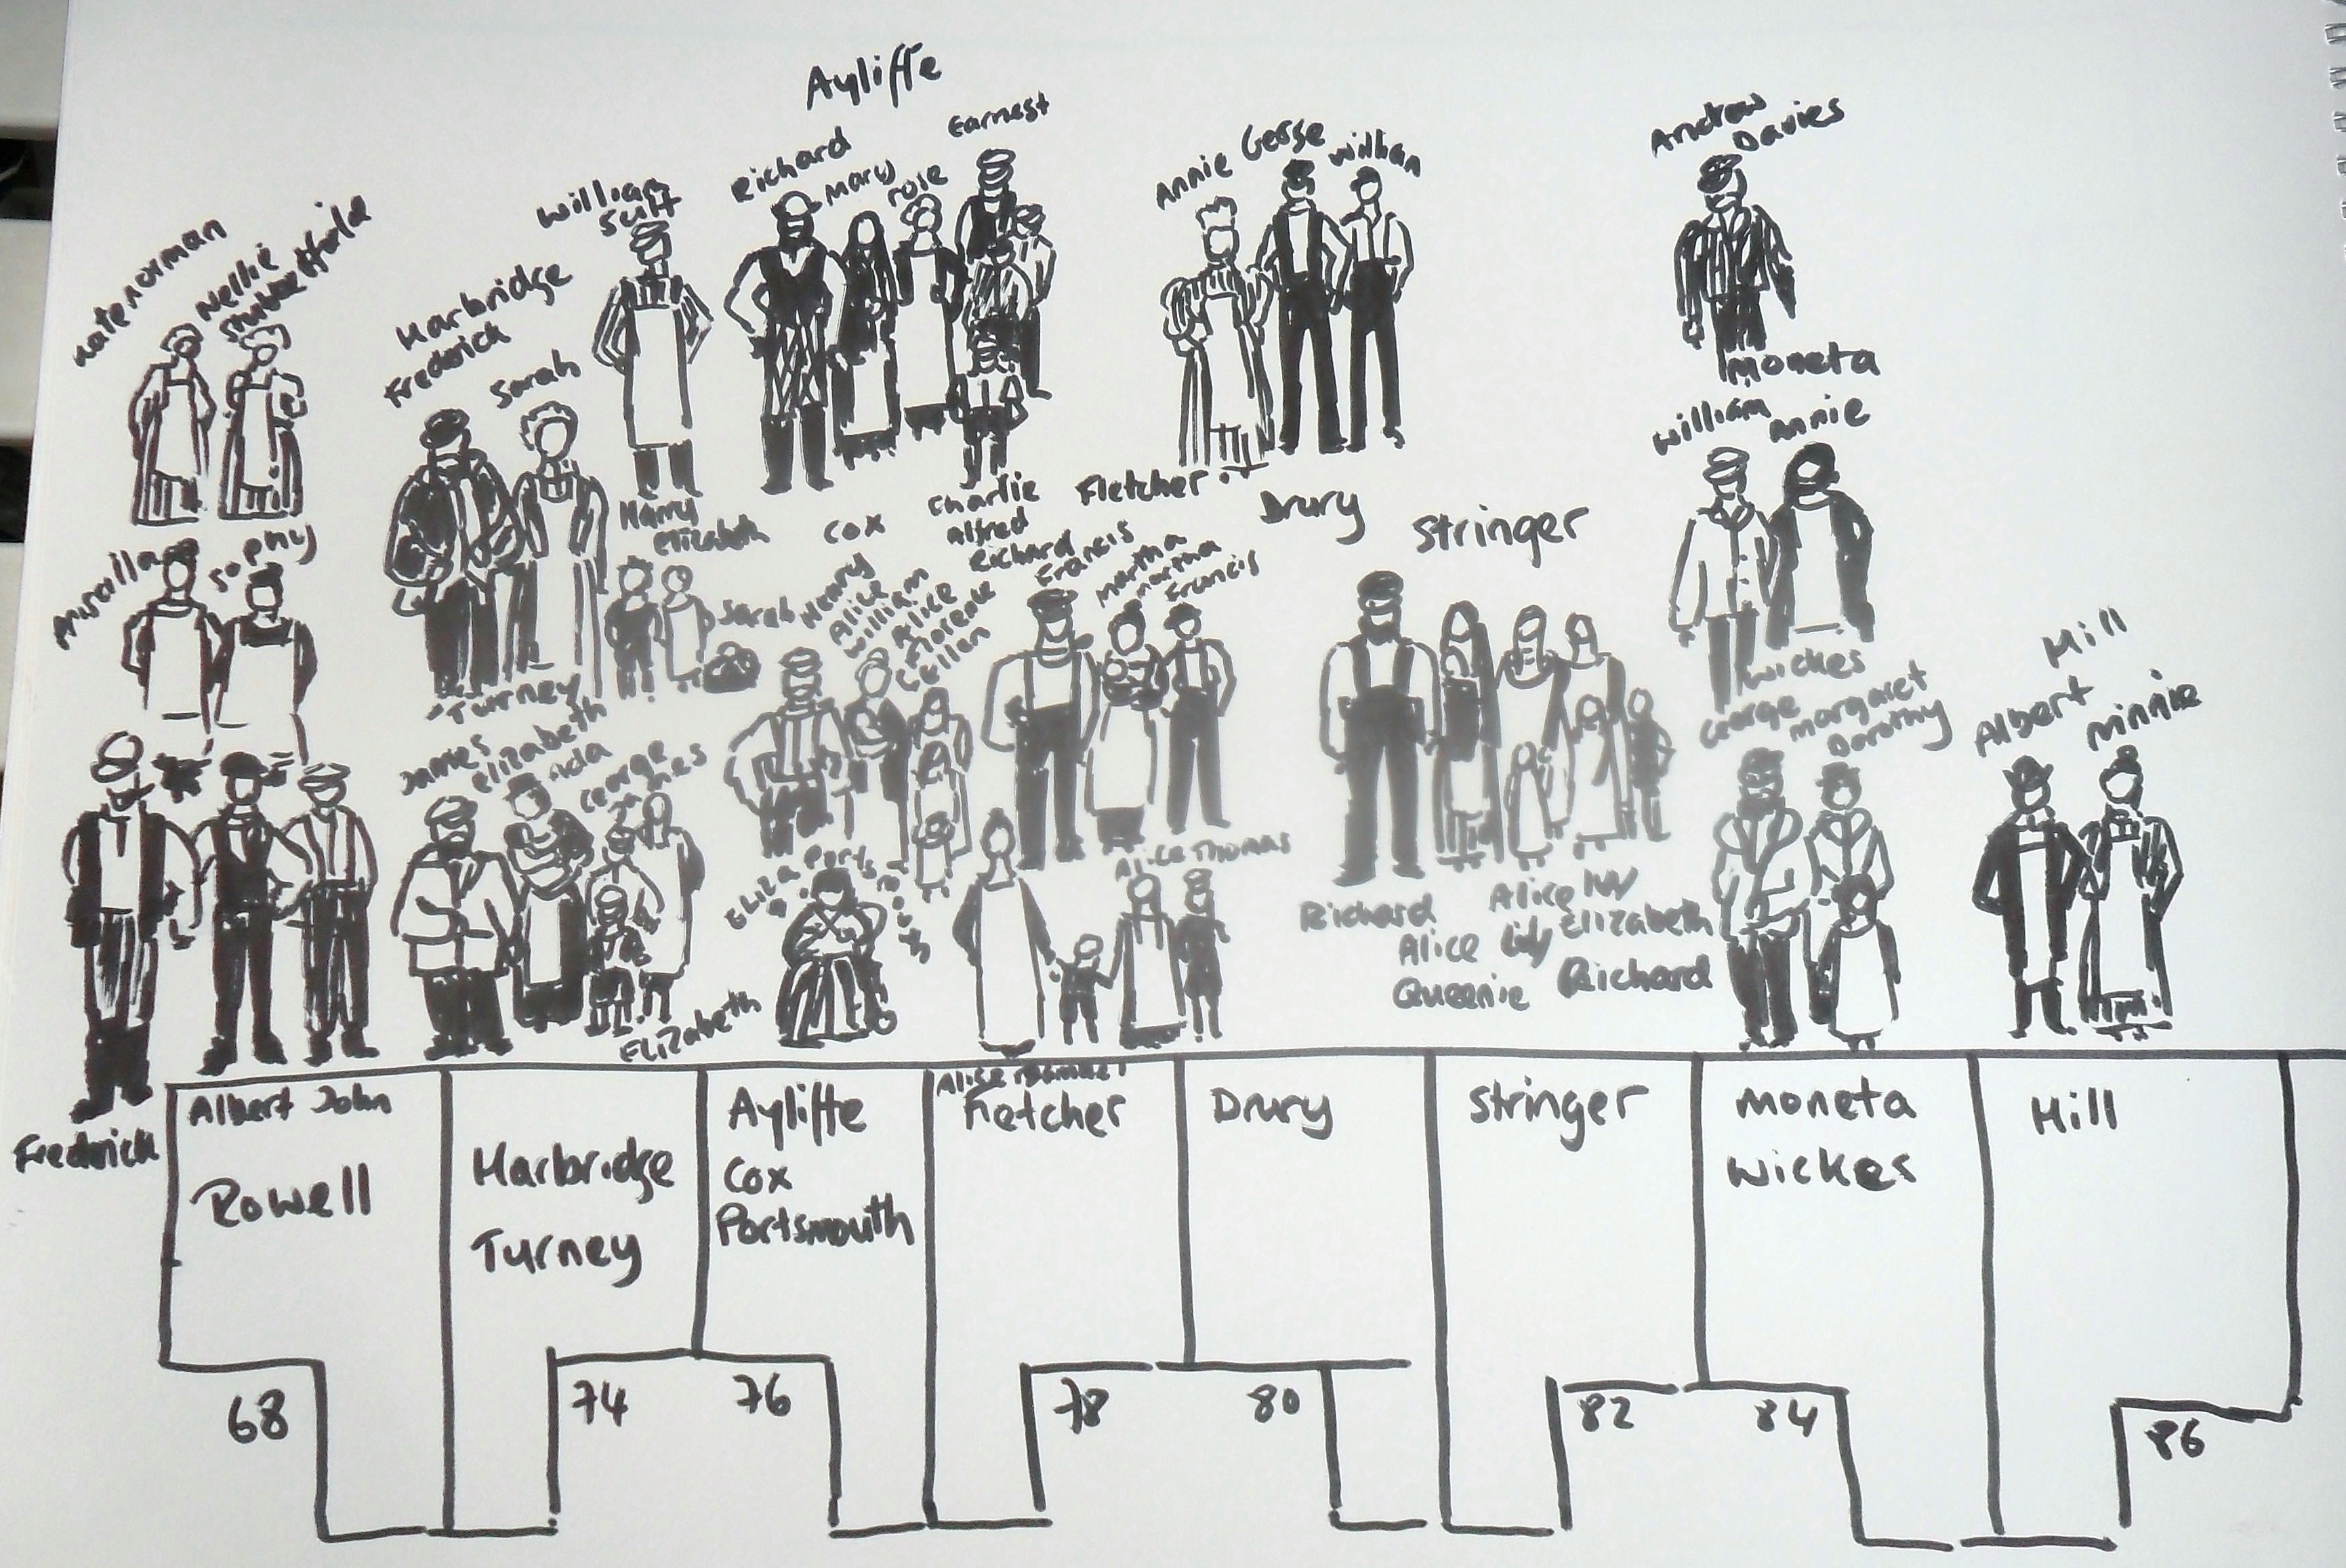 Ayliffe
Richard
Mary
rose
Earnest
Annie
William
Andrew
Davies
William
Suff
Kate Norman
Nellie
Harbridge
Fredrick
Sarah
Moneta
William
Annie
Harry
Elizabeth
Cox
Charlie
Alfred
Richard
Fletcher
Drury
Stringer
Francis
Martha
Martha
Francis
Sophy
Sarah
Henry
Alice
William
Alice
Florence
Turney
James
Elizabeth
Ada
George
Wickes
George
Margaret
Dorothy
Hill
Albert
Minnie
Eliza Portsmouth
Alice Thomas
Richard
Alice
Queenie
Alice
Lily
Elizabeth
Richard
Elizabeth
Fredrick
Albert John
Rowell
Harbridge
Turney
Ayliffe
Cox
Portsmouth
Fletcher
Drury
Stringer
Moneta
Wickes
Hill
68
74
76
78
80
82
84
86